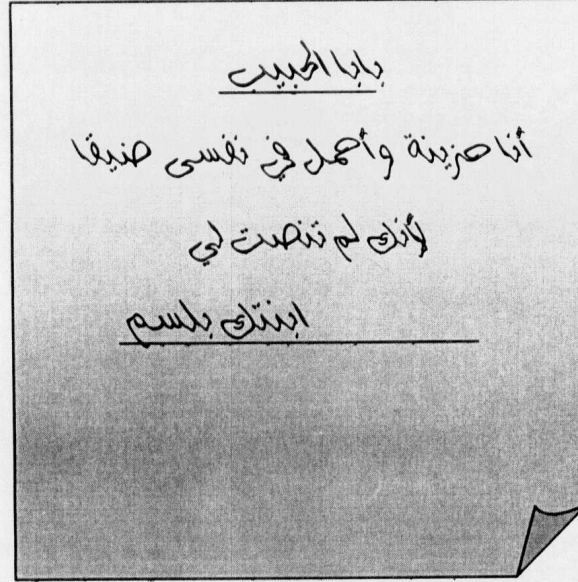 بابا الحبيب
أنا حزينة وأحمل في نفسى ضيقا
لأنك لم تنصت لي
ابنتك بلسم